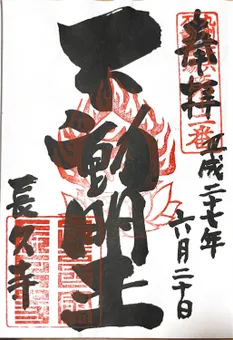 奉拝
平成二十七年
六月二十日
不動明王
長久寺